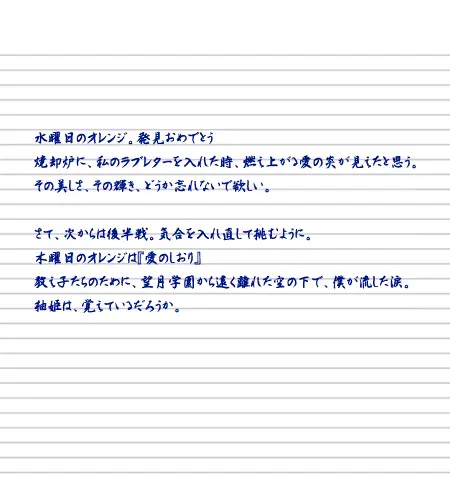 水曜日のオレンジ。発見おめでとう
焼却炉に、私のラブレターを入れた時、燃え上がる愛の炎が見えたと思う。
その美しさ、その輝き、どうか忘れないで欲しい。
さて、次からは後半戦。気合を入れ直して挑むように。
木曜日のオレンジは『愛のしおり』
教え子たちのために、望月学園から遠く離れた空の下で、僕が流した涙。
柚姫は、覚えているだろうか。